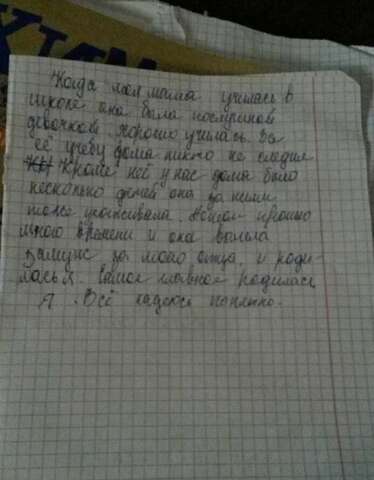 ХИМ
Когда моя мама училась в
школе она была послушной
девочкой. Хорошо училась. За
её учебу дома никто не следил
Кроме неё у нас дома было
несколько детей она за ними
тоже ухаживала. прошло
много времени и она вышла
замуж за моего отца. и роди-
лась я. Самое главное родилась
Я. Всё надеюсь понятно.